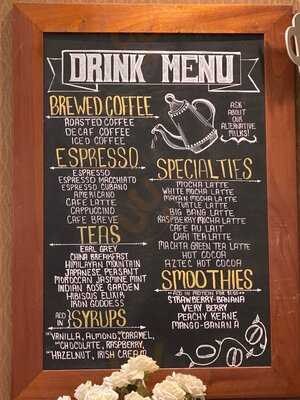 DRINK MENU
BREWED COFFEE
ROASTED COFFEE
DECAF COFFEE
ICED COFFEE
ESPRESSO
ESPRESSO
ESPRESSO MACCHIATO
ESPRESSO CUBANO
AMERICANO
CAFE LATTE
CAPPUCCINO
CAFE BREVE
TEAS
EARL GREY
CHINA BREAKFAST
HIMILAYAN MOUNTAIN
JAPANESE PEASANT
MOROCCAN JASMINE MINT
INDIAN ROSE GARDEN
HIBISCUS ELIXIR
IRON GODDESS
ADD IN SYRUPS
VANILLA, ALMOND, CARAMEL,
CHOCOLATE, RASPBERRY,
HAZELNUT, IRISH CREAM
ASK
ABOUT
OUR
ALTERNATIVE
MILKS!
SPECIALTIES
MOCHA LATTE
WHITE MOCHA LATTE
MAYAN MOCHA LATTE
TURTLE LATTE
BIG BANG LATTE
RASPBERRY MOCHA LATTE
CAFE AU LAIT
CHAI TEA LATTE
MACHTA GREEN TEA LATTE
HOT COCOA
AZTEC HOT COCOA
SMOOTHIES
ADD IN PROTEIN FOR
STRAWBERRY-BANANA
VERY BERRY
PEACHY KEANE
MANGO-BANANA